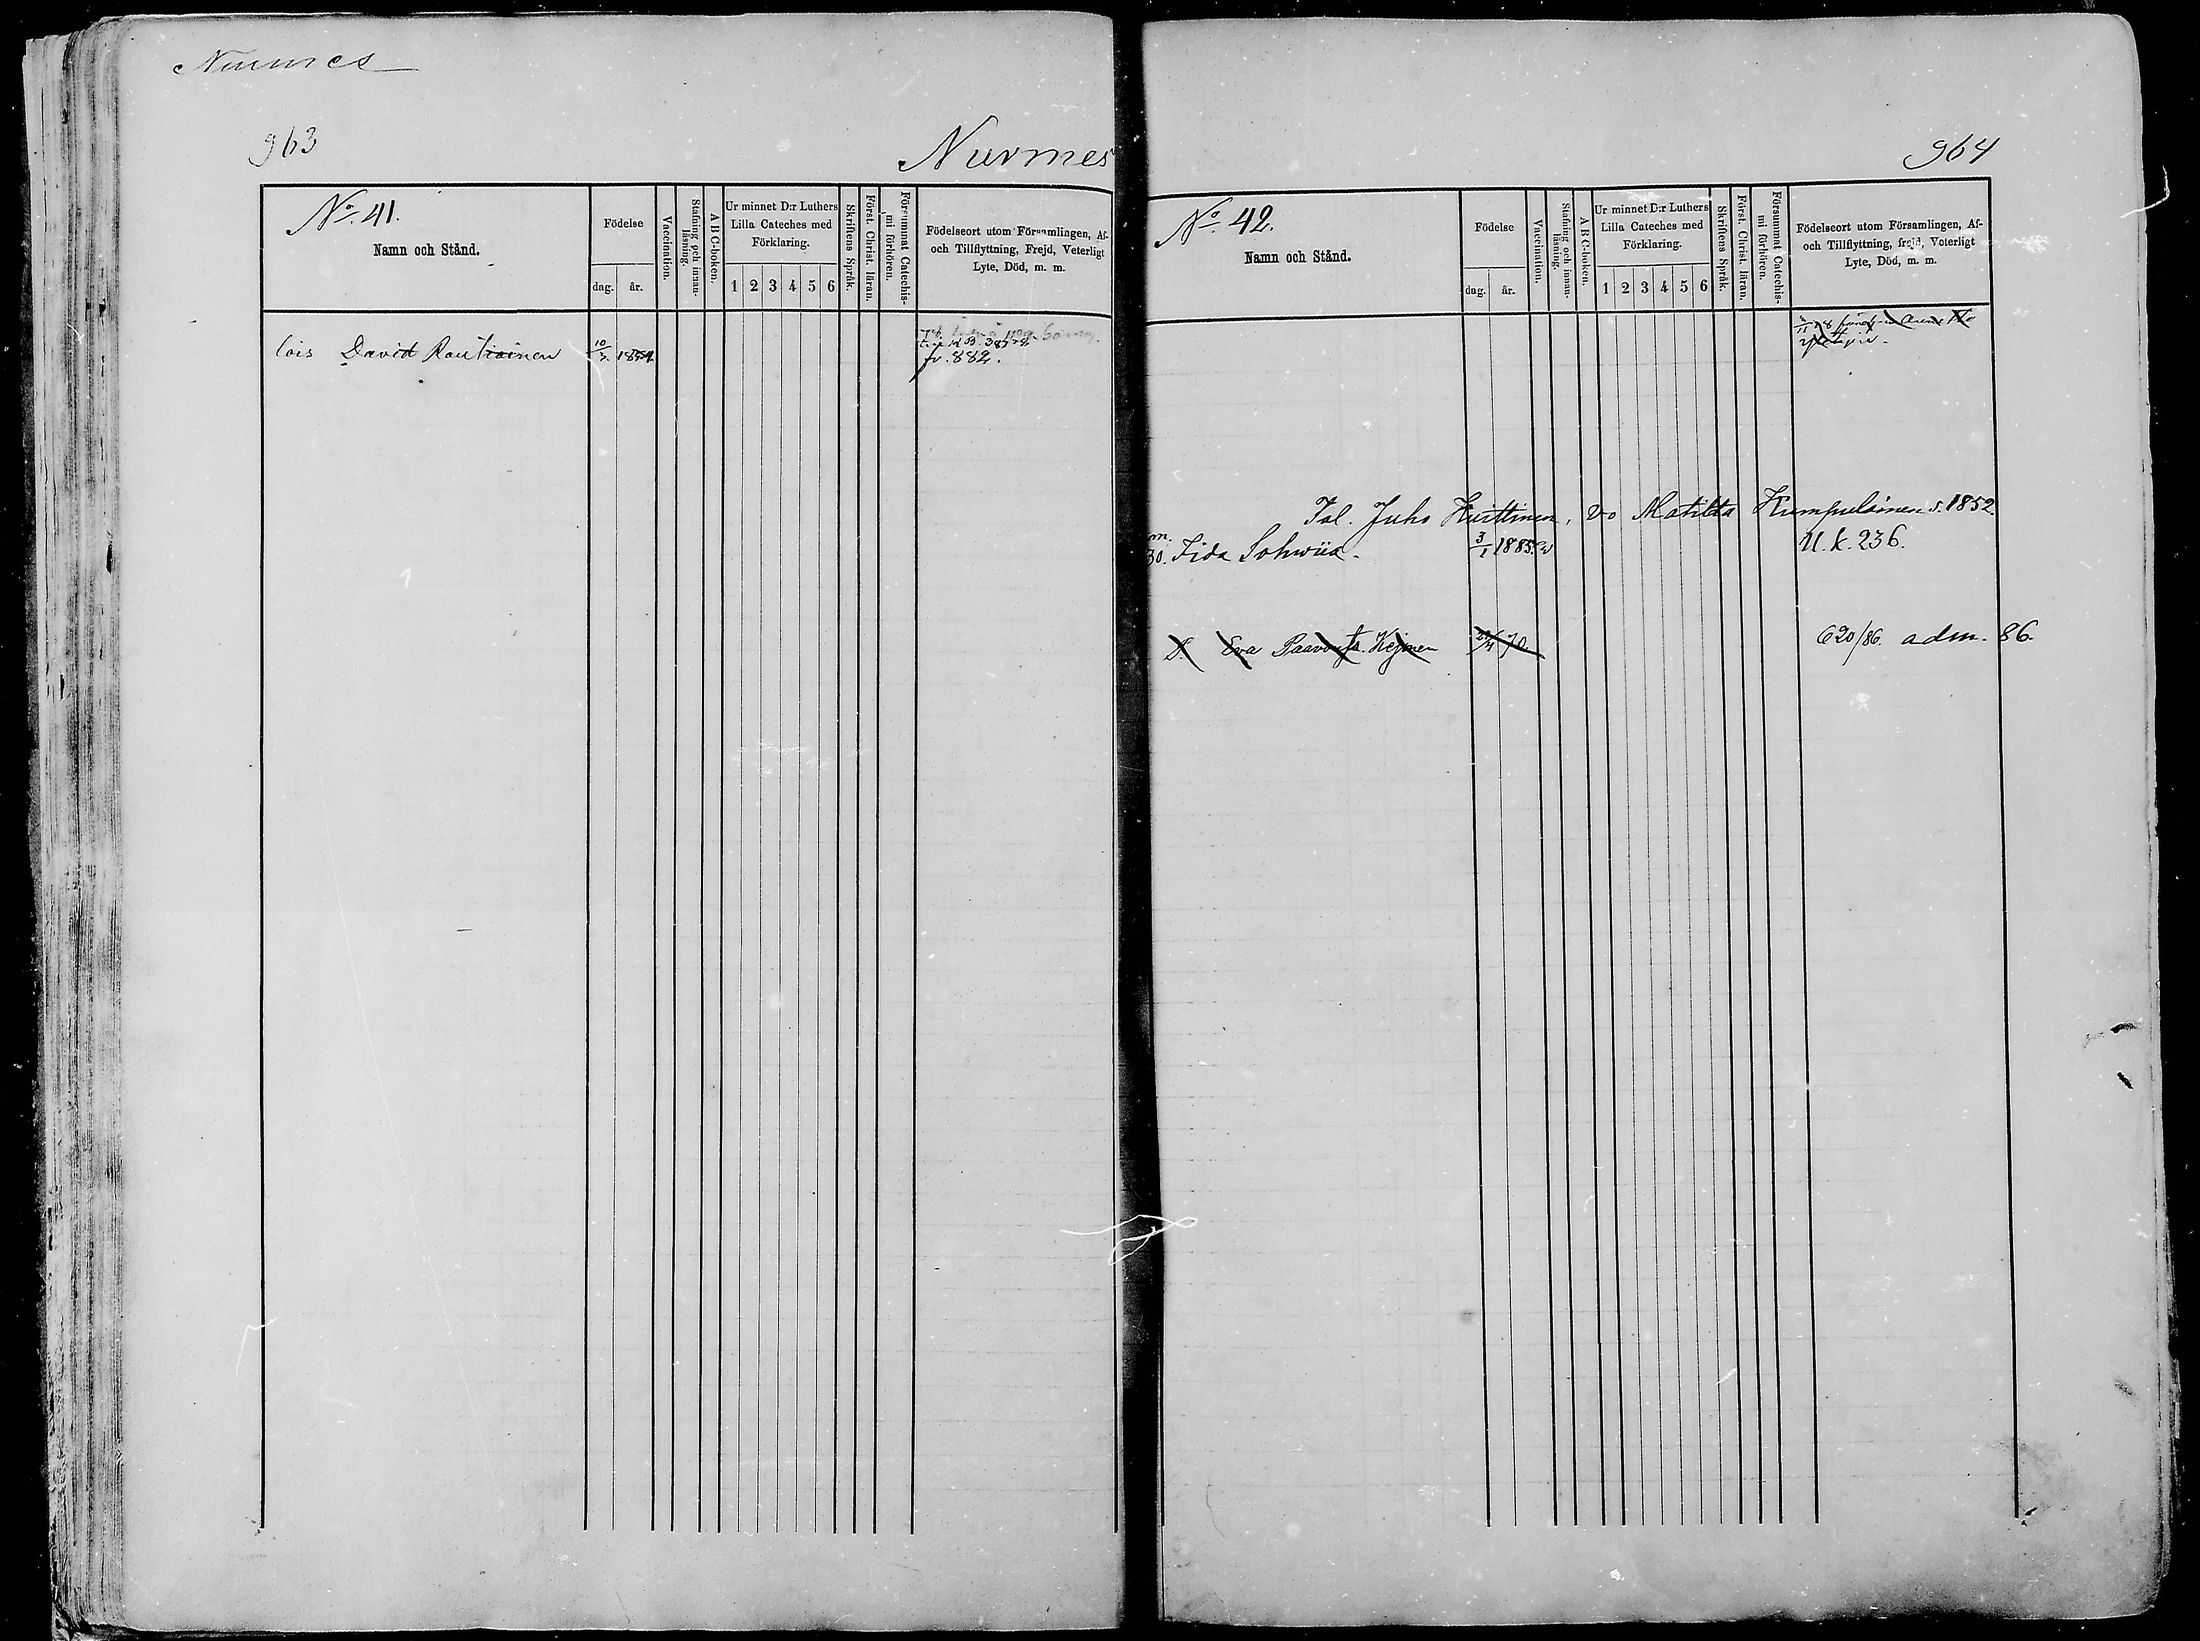 Nurmes
963
Nurmes
No. 41.
Namn och Stånd.
Födelse
dag. år.
Vaccination.
Stafning och innan-läsning.
A B C-boken.
Ur minnet D:r Luthers
Lilla Cateches med
Förklaring.
1 2 3 4 5 6
Skriftens Språk.
Först. Christ. läran.
Försummat Catechis-
mi förhören.
Födelseort utom Församlingen, Af-
och Tillflyttning, Frejd, Veterligt
Lyte, Död, m. m.
lois David Rautiainen 10/7 18
fr. 882.
964
No. 42.
Namn och Stånd.
Födelse
dag. år.
Vaccination.
Stafning och innan-läsning.
A B C-boken.
Ur minnet D:r Luthers
Lilla Cateches med
Förklaring.
1 2 3 4 5 6
Skriftens Språk.
Först. Christ. läran.
Försummat Catechis-
mi förhören.
Födelseort utom Församlingen, Af-
och Tillflyttning, frejd, Veterligt
Lyte, Död, m. m.
Tal. Juho Hurttinen, vo Matilda Kumpulainen s. 1852.
m.
30. Fida Sohwiia. 3/1 1885 U. k. 236.
D. Eva Paavont. Kejnen 70 620/86. adm. 86.